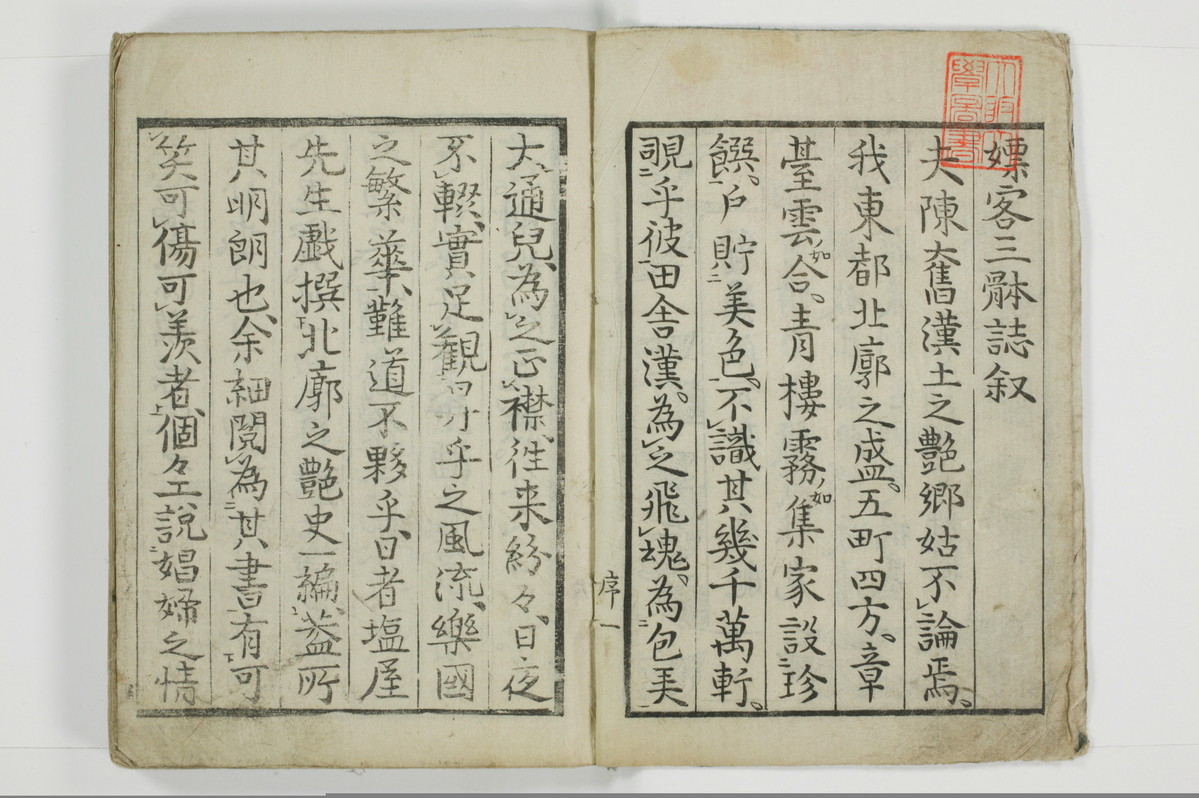 嫖客三躰誌叙
夫陳奮漢土之艷郷姑不論焉。
我東都北廓之盛。五町四方、章
臺雲如合、青樓霧如集家設珍
饌。戸貯美色。不識其幾千萬軒。
覗乎彼田舎漢。為之飛魂。為包美
大通兒、為之正襟、徃来紛々、日夜
不輟、實足觀乎之風流、樂國
之繁華、難道不夥乎、日者塩屋
先生戯撰北廓之艷史一編、葢所
其明朗也、余細閲為其書有可
笑可傷可羨者、個々工説娼婦之情
序一